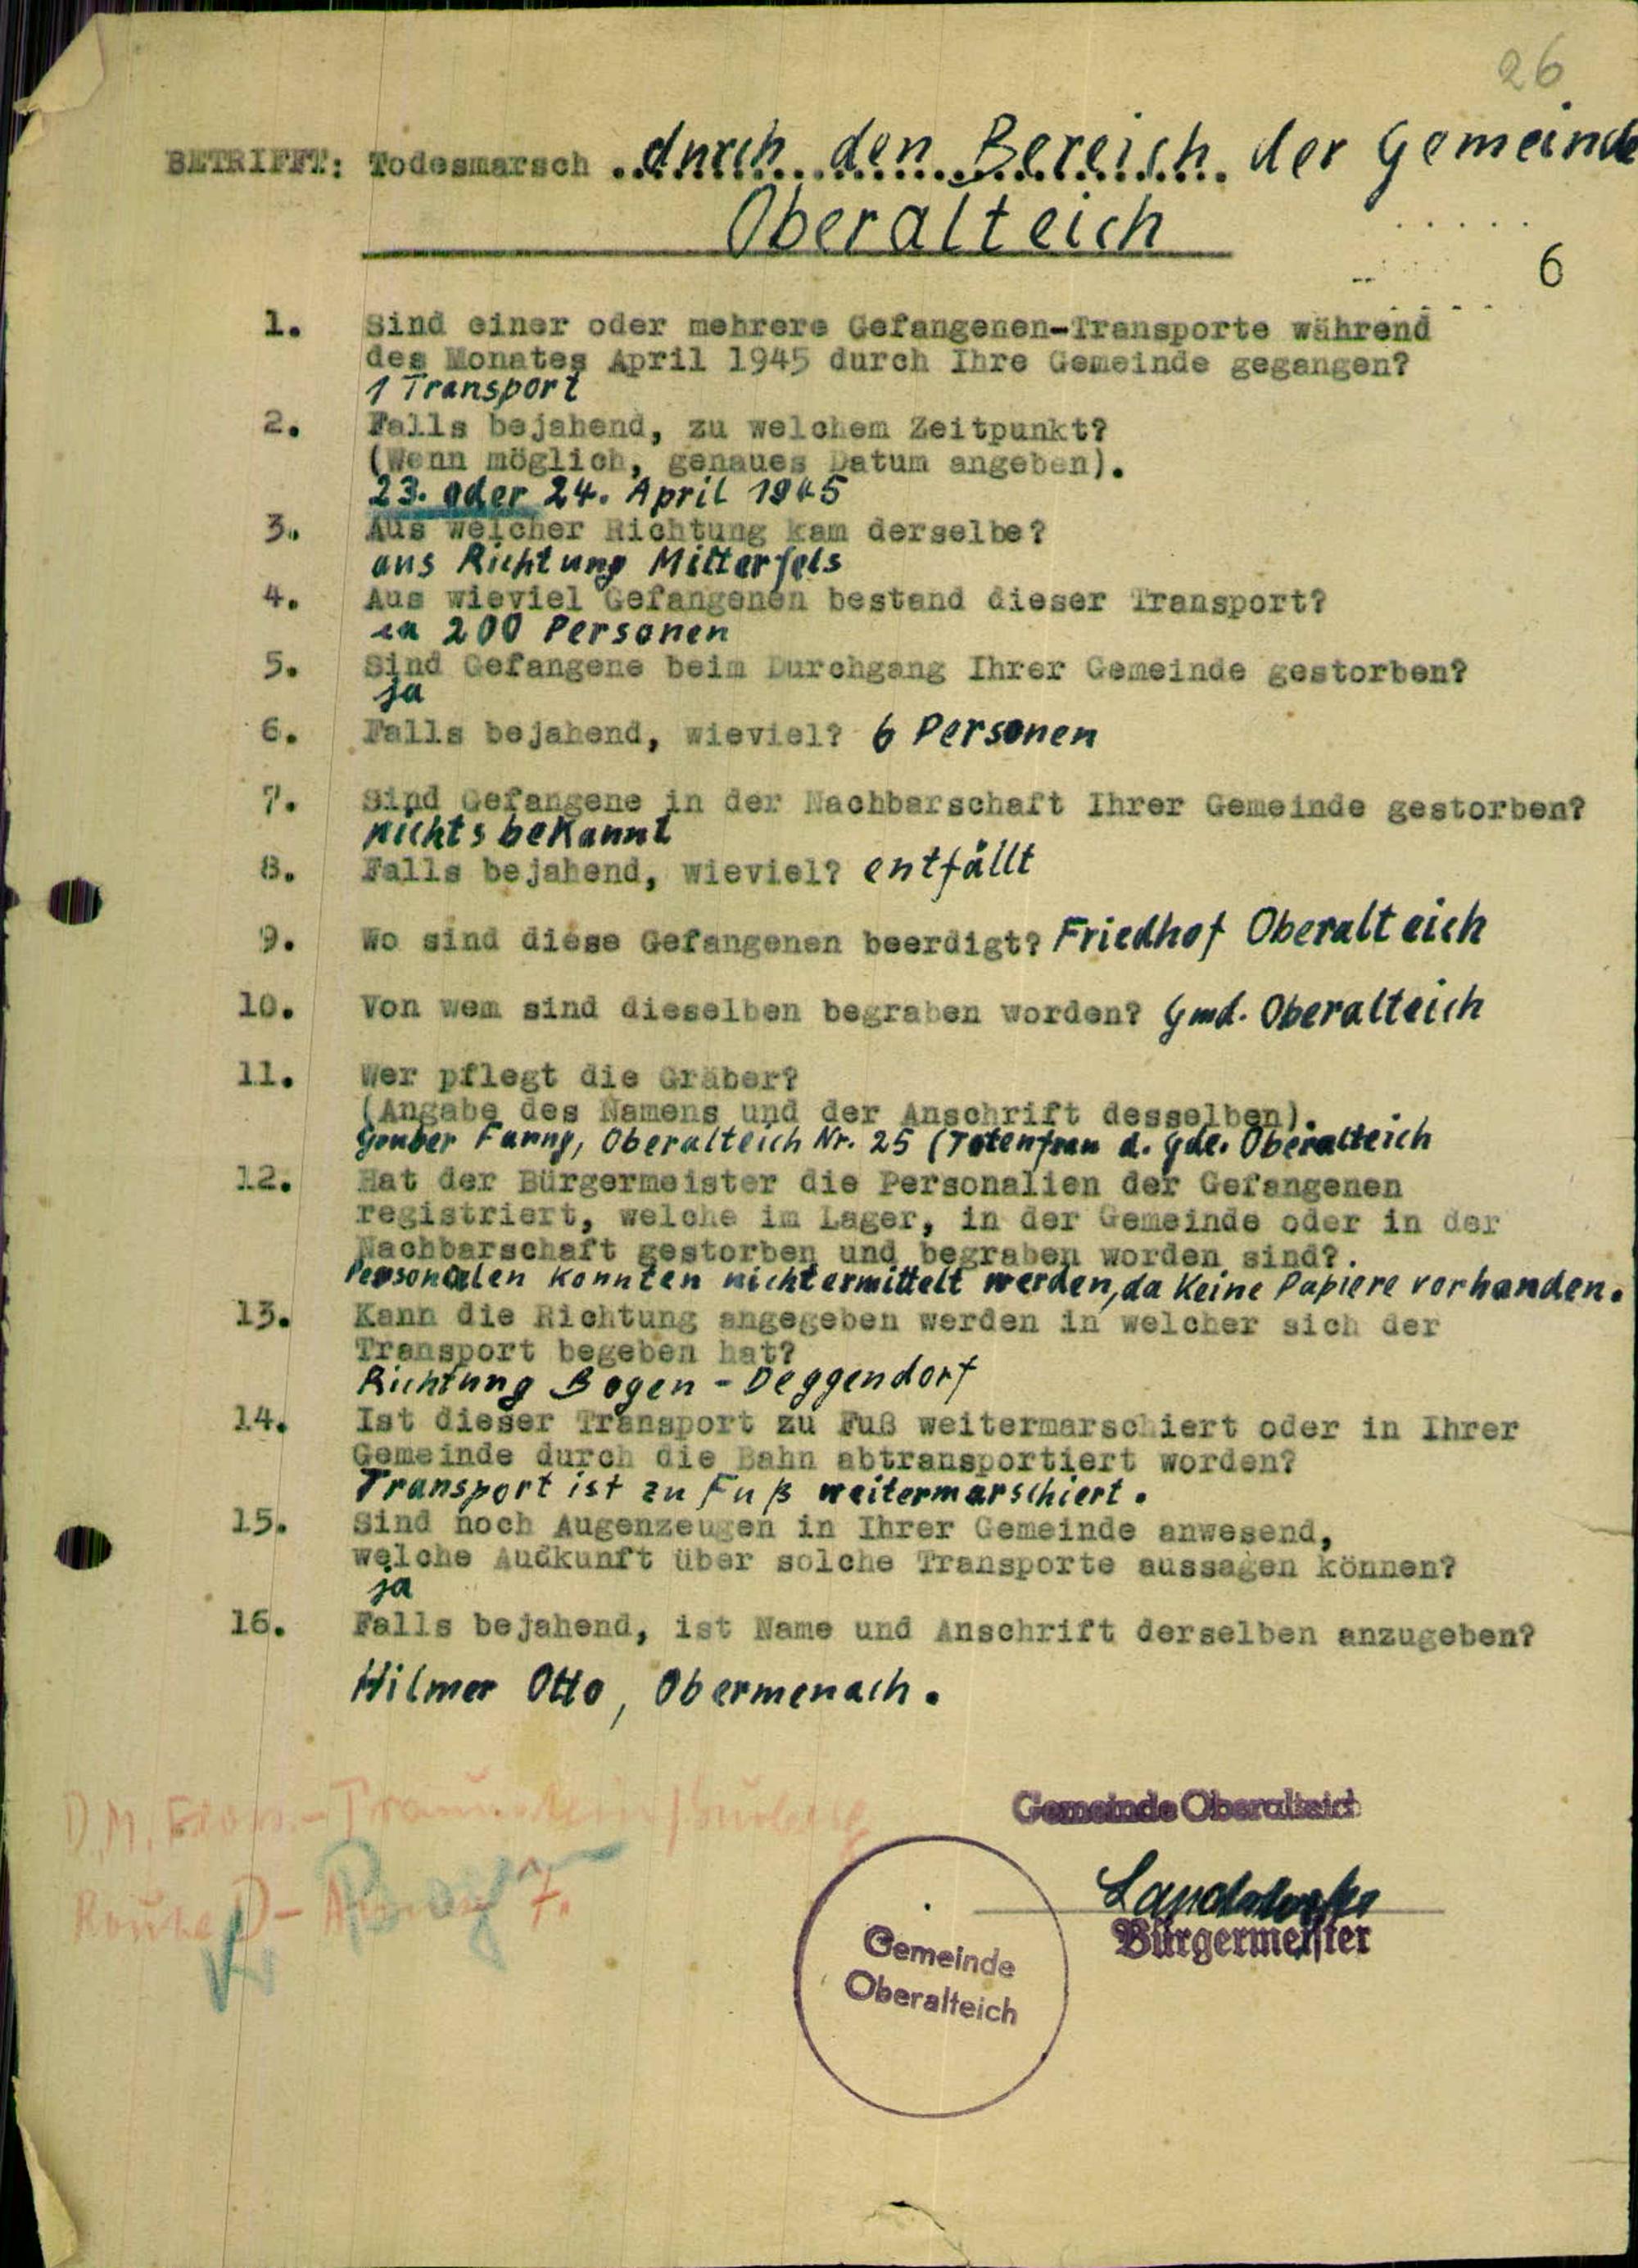 26
BETRIFFT: Todesmarsch durch den Bereich der Gemeinde
Oberalteich
6
1. Sind einer oder mehrere Gefangenen-Transporte während
des Monates April 1945 durch Ihre Gemeinde gegangen?
1 Transport
2. Falls bejahend, zu welchem Zeitpunkt?
(Wenn möglich, genaues Datum angeben).
23. oder 24. April 1945
3. Aus welcher Richtung kam derselbe?
aus Richtung Mitterfels
4. Aus wieviel Gefangenen bestand dieser Transport?
ca 200 Personen
5. Sind Gefangene beim Durchgang Ihrer Gemeinde gestorben?
ja
6. Falls bejahend, wieviel? 6 Personen
7. Sind Gefangene in der Nachbarschaft Ihrer Gemeinde gestorben?
nichts bekannt
8. Falls bejahend, wieviel? entfällt
9. Wo sind diese Gefangenen beerdigt? Friedhof Oberalteich
10. Von wem sind dieselben begraben worden? Gmd. Oberalteich
11. Wer pflegt die Gräber?
(Angabe des Namens und der Anschrift desselben).
Gruber Fanny, Oberalteich Nr. 25 (Totenfrau d. Gde. Oberalteich
12. Hat der Bürgermeister die Personalien der Gefangenen
registriert, welche im Lager, in der Gemeinde oder in der
Nachbarschaft gestorben und begraben worden sind?.
Personalen konnten nicht ermittelt werden, da Keine Papiere vorhanden.
13. Kann die Richtung angegeben werden in welcher sich der
Transport begeben hat?
Richtung Bogen - Deggendorf
14. Ist dieser Transport zu Fuß weitermarschiert oder in Ihrer
Gemeinde durch die Bahn abtransportiert worden?
Transport ist zu Fuß weitermarschiert.
15. Sind noch Augenzeugen in Ihrer Gemeinde anwesend,
welche Audkunft über solche Transporte aussagen können?
ja
16. Falls bejahend, ist Name und Anschrift derselben anzugeben?
Hilmer Otto, Obermenach.
D.M.
Gemeinde Oberalteich
Route D - 7.
Bürgermeister
Gemeinde
Oberalteich